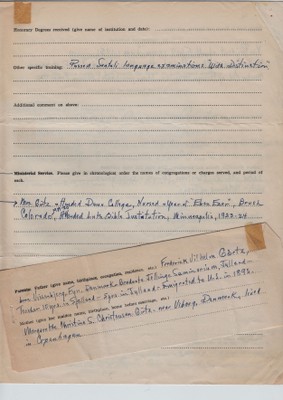 Honorary Degrees received (give name of institution and date):
Other specific training: Passed Santali language examinations "With Distinction"
Additional comment on above:
Ministerial Service. Please give in chronological order the names of congregations or charges served, and period of each.
Mrs. Götz attended Dana College, Nursed at "Eben Ezer", Brush
Colorado, Attended Luth. Bible Institution, Minneapolis, 1922-24
Parents: Father (give name, birthplace, occupation, residence, etc.) Frederik Vilhelm Gøtz,
born Viborg, Denmark. Graduate Jellinge Seminarium, Jylland -
Teacher 10 yrs. in Sjelland - 5 yrs in Jylland - Emigrated to U.S. in 1893.
Mother (give her maiden name, birthplace, home before marriage, etc.)
Margarethe Christine S. Christensen Götz - near Viborg, Denmark, lived
in Copenhagen